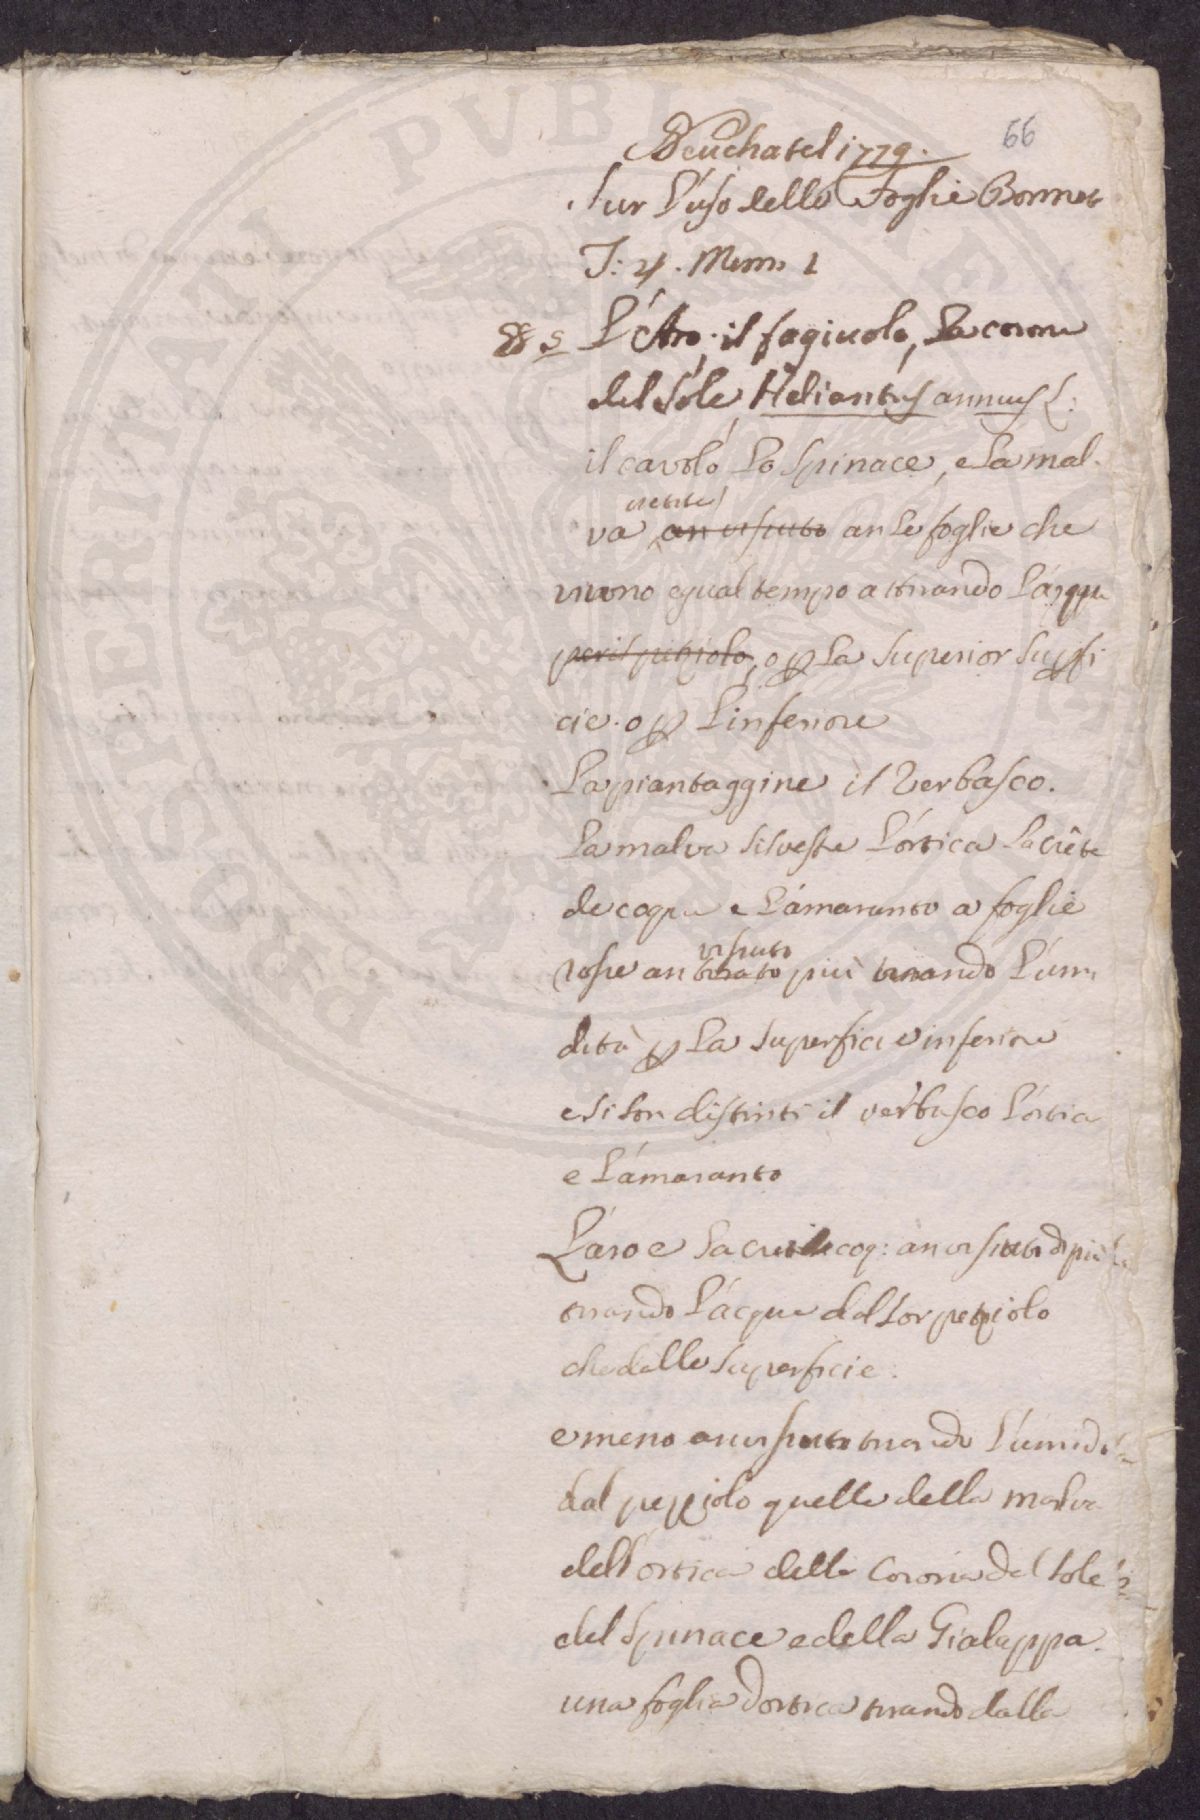 66
Neuchatel 1779.
Sur l'uso delle Foglie Bonnet
T: 4. Mem. 1
88 s L'Aro, il fagiuolo, la corona
del Sole Heliantus annuus L:
il cavolo, lo Spinace, e la mal-
va an le foglie che
vivono egual tempo a tirando l'acqua
per il petziolo, o p la Superior Supfi
cie. o p l'inferiore
La piantaggine il Verbasco.
La malva Silvestre l'ortica la crête
de coq e l'amaranto a foglie
rosse an vissuto tirato più tirando l'umi
dità p la Superficie inferiore
e si son distinti il verbasco l'ortica
e l'amaranto
L'aro e la crete coq: an vissuto di più
tirando l'acqua dal lor petziolo
che dalle Superficie:
e meno an vissuto tirando l'umidità
dal pezziolo quelle della malva
dell'ortica della Corona del Sole
del Spinace e della Gialappa.
una foglia d'ortica tirando dalla
PROSPERITATI PVBLICAE